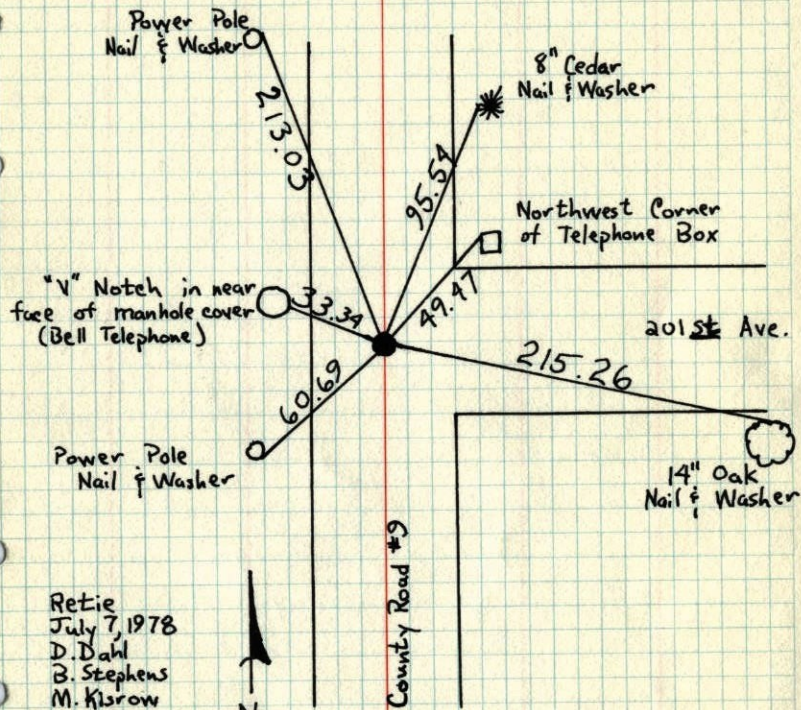 Power Pole
Nail & Washer
8" Cedar
Nail & Washer
213.03
95.54
Northwest Corner
of Telephone Box
"V" Notch in near
face of manhole cover
(Bell Telephone)
33.34
49.47
201st Ave.
215.26
60.69
Power Pole
Nail & Washer
14" Oak
Nail & Washer
County Road #9
Retie
July 7, 1978
D. Dahl
B. Stephens
M. Kisrow